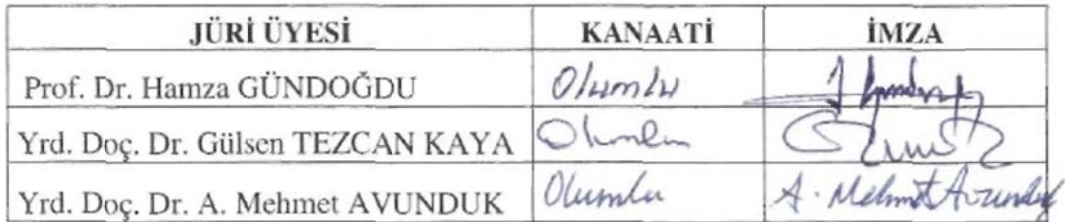 JÜRİ ÜYESİ KANAATİ İMZA
Prof. Dr. Hamza GÜNDOĞDU Olumlu
Yrd. Doç. Dr. Gülsen TEZCAN KAYA Olumlu
Yrd. Doç. Dr. A. Mehmet AVUNDUK Olumlu A. Mehmet Avunduk